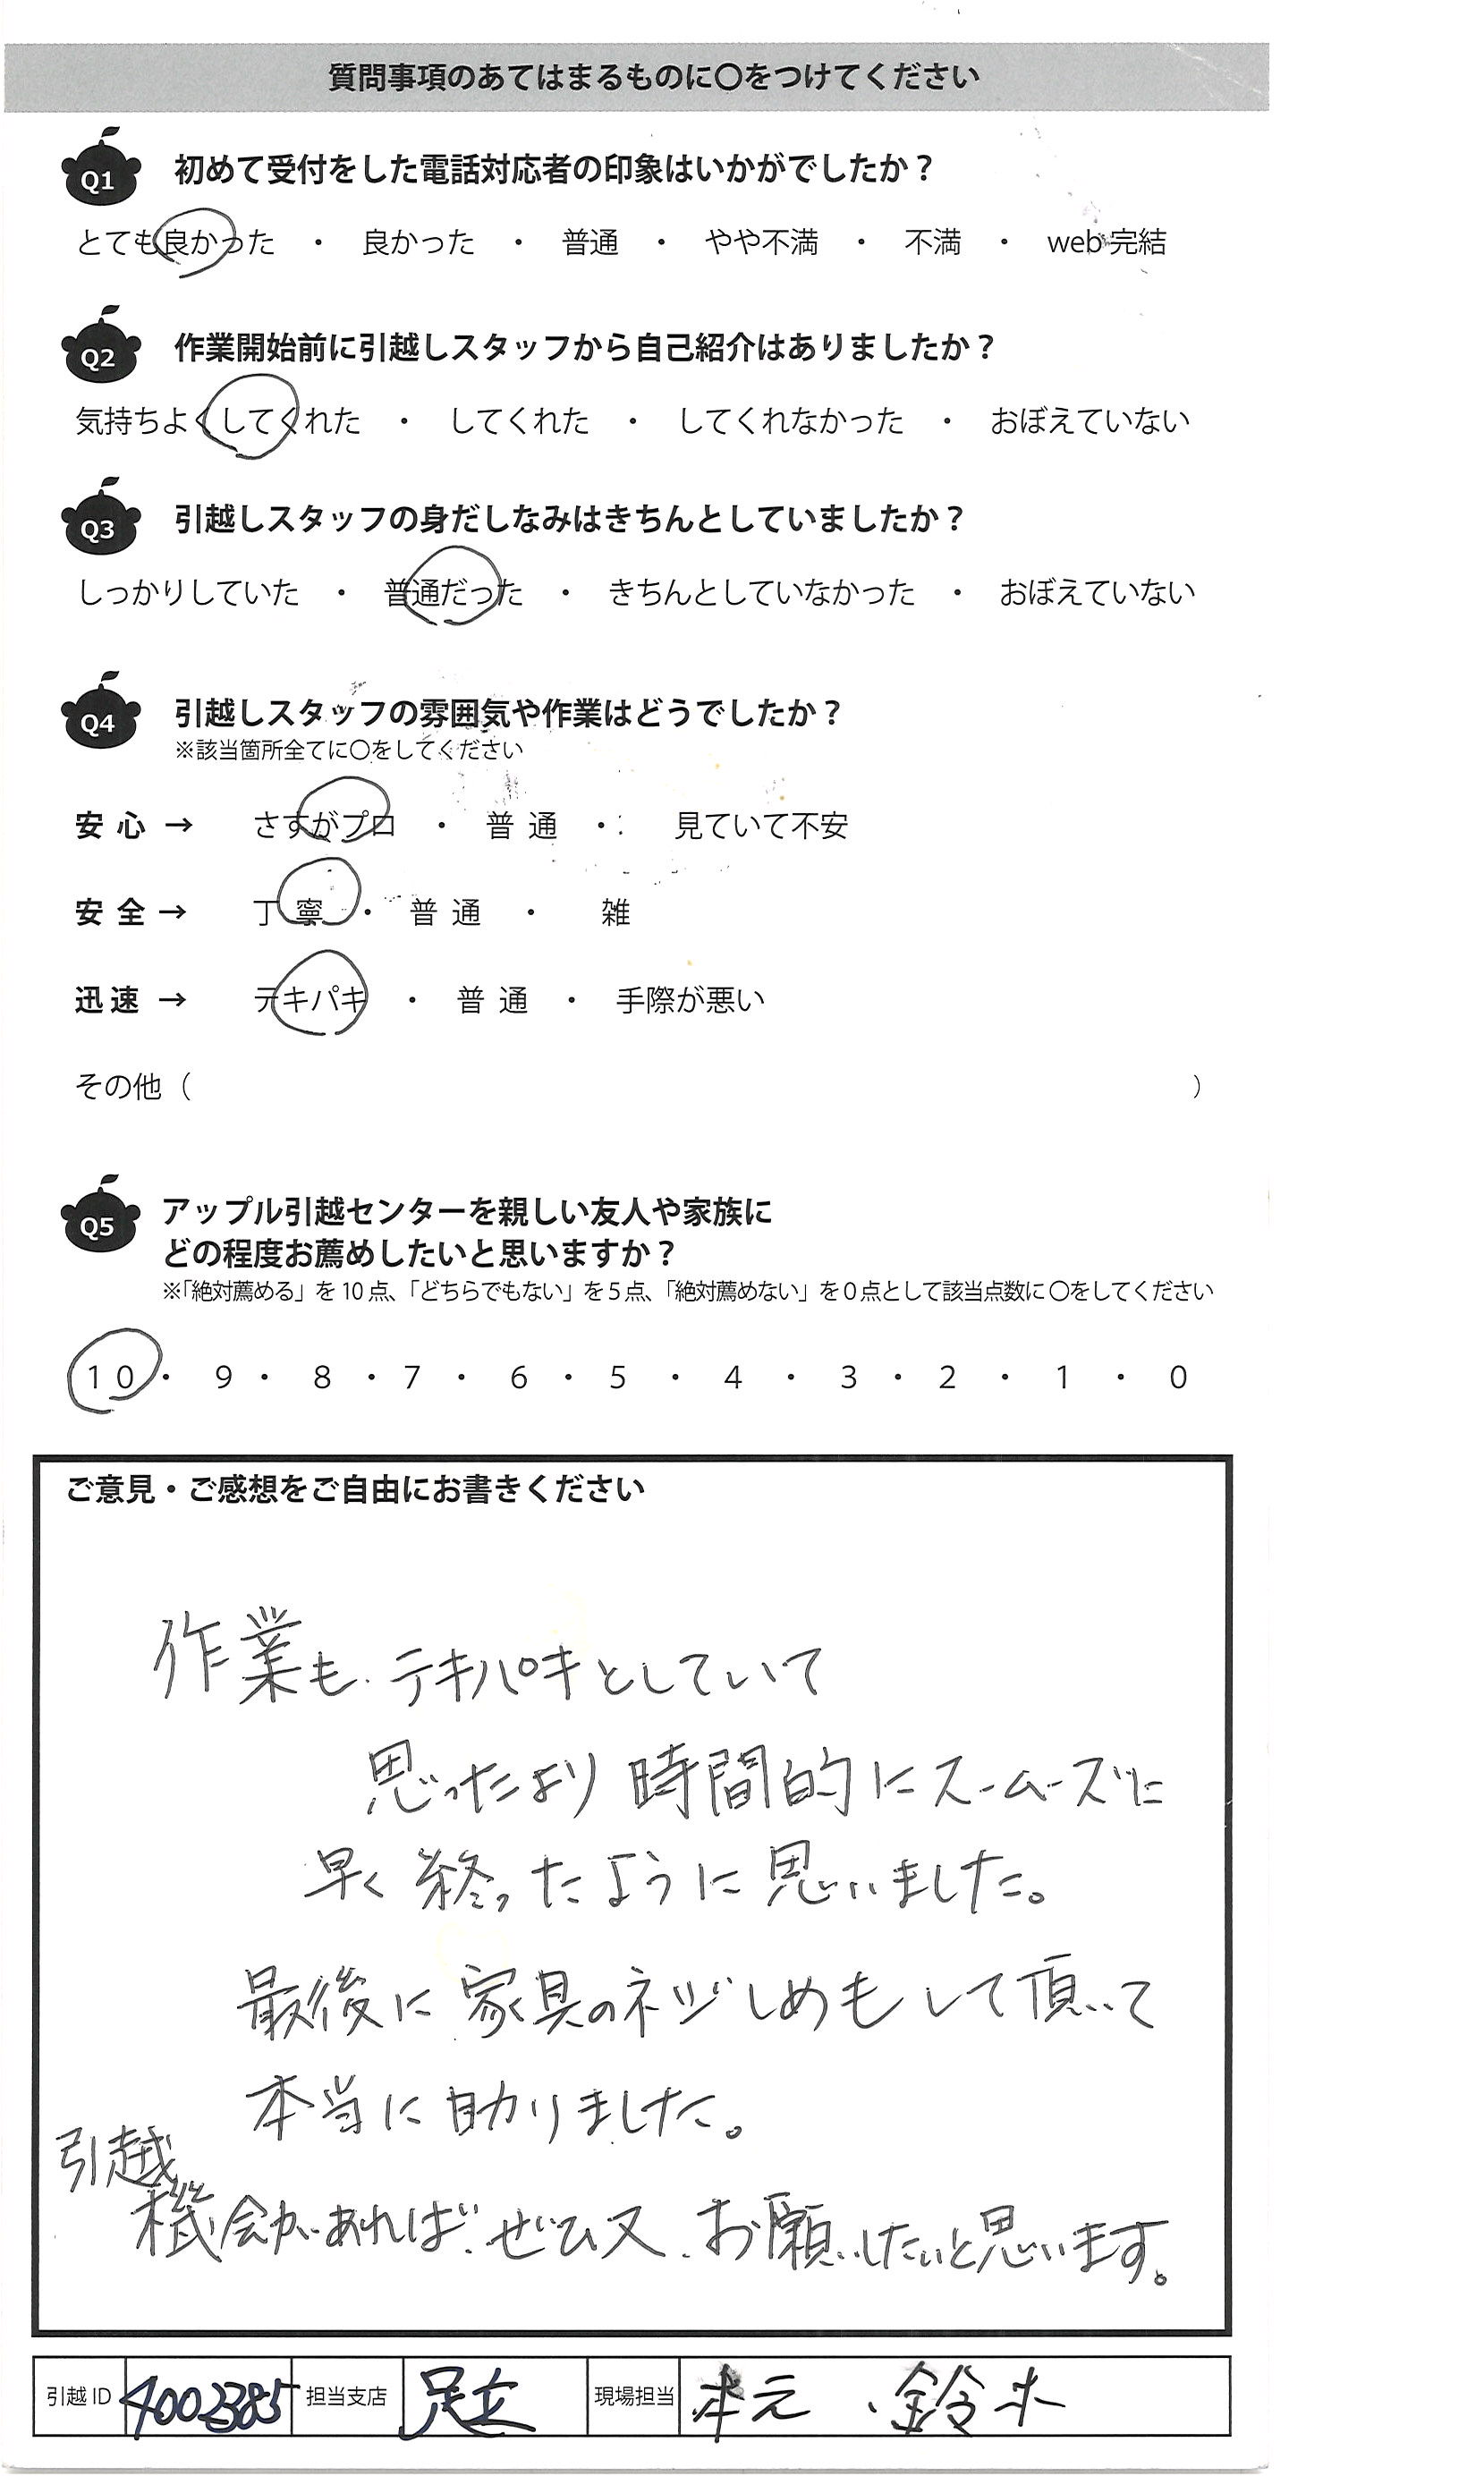 質問事項のあてはまるものに〇をつけてください
Q1 初めて受付をした電話対応者の印象はいかがでしたか？
とても良かった ・ 良かった ・ 普通 ・ やや不満 ・ 不満 ・ web 完結
Q2 作業開始前に引越しスタッフから自己紹介はありましたか？
気持ちよくしてくれた ・ してくれた ・ してくれなかった ・ おぼえていない
Q3 引越しスタッフの身だしなみはきちんとしていましたか？
しっかりしていた ・ 普通だった ・ きちんとしていなかった ・ おぼえていない
Q4 引越しスタッフの雰囲気や作業はどうでしたか？
※該当箇所全てに〇をしてください
安心 → さすがプロ ・ 普通 ・ 見ていて不安
安全 → 丁寧 ・ 普通 ・ 雑
迅速 → テキパキ ・ 普通 ・ 手際が悪い
その他（ ）
Q5 アップル引越センターを親しい友人や家族に
どの程度お薦めしたいと思いますか？
※「絶対薦める」を 10 点、「どちらでもない」を 5 点、「絶対薦めない」を 0 点として該当点数に 〇をしてください
10 ・ 9 ・ 8 ・ 7 ・ 6 ・ 5 ・ 4 ・ 3 ・ 2 ・ 1 ・ 0
ご意見・ご感想をご自由にお書きください
作業も、テキパキとしていて
思ったより時間的にスームーズに
早く終ったように思いました。
最後に家具のネジしめもして頂いて
本当に助りました。
引越
機会があれば、ぜひ又、お願いしたいと思います。
引越 ID 4002385 担当支店 足立 現場担当 本元 、鈴木